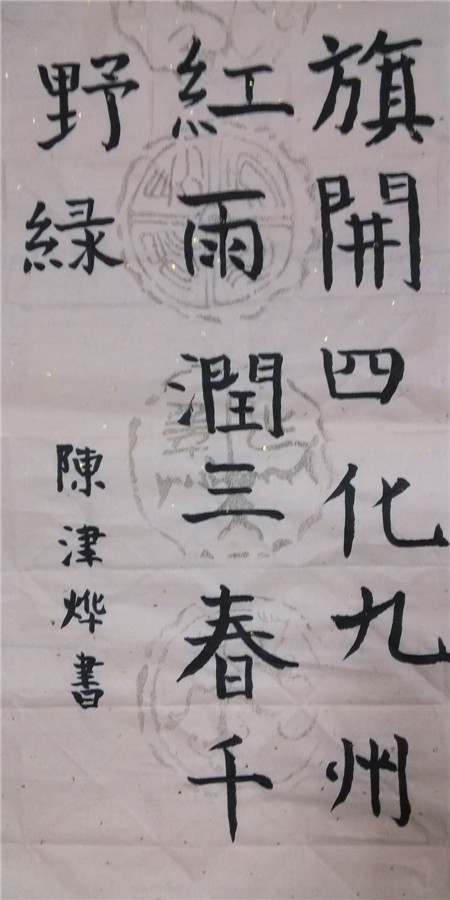 旗開四化九州
紅雨潤三春千
野緑
陳津燁書